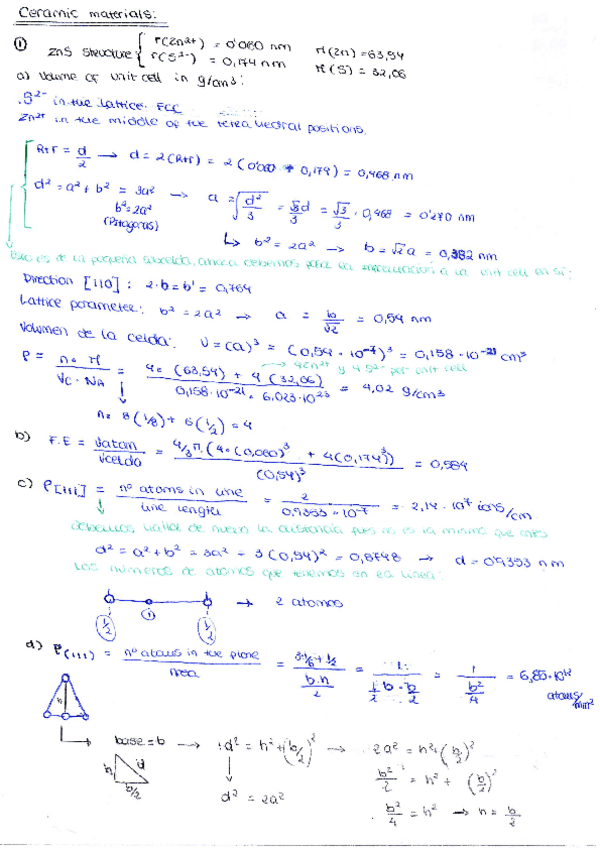 Ceramic materials:
① ZnS structure { r(Zn²⁺) = 0'060 nm M(Zn) = 63,54
r(S²⁻) = 0,174 nm M(S) = 32,06
a) Volume of unit cell in g/cm³:
S²⁻ in the lattice FCC
Zn²⁺ in the middle of the positions.
R+r = d/2 → d = 2(R+r) = 2(0'060 + 0,174) = 0,468 nm
d² = a² + b² = 3a² → a = √(d²/3) = = √3/3 · 0,468 = 0'270 nm
b² = 2a²
(Pitagoras)
↳ b² = 2a² → b = √2 a = 0,382 nm
Esto es de la pequeña subcelda, ahora debemos a la unit cell en sí:
Direction [110] : 2·b = b' = 0,764
Lattice parameter: b² = 2a² → a = b/√2 = 0,54 nm
Volumen de la celda: V = (a)³ = (0,54 · 10⁻⁷)³ = 0,158 · 10⁻²¹ cm³
→ 4 Zn²⁺ y 4 S²⁻ per unit cell
ρ = n · M / Vc · NA = 4 · (63,54) + 4 (32,06) / 0,158·10⁻²¹ · 6,023·10²³ = 4,02 g/cm³
n = 8(1/8) + 6(1/2) = 4
b) F.E = Vatom / Vcelda = 4/3 π (4·(0,060)³ + 4(0,174)³) / (0,54)³ = 0,584
c) ρ[111] = nº atoms in line / line length = 2 / 0,9353 · 10⁻⁷ = 2,14 · 10⁷ ions/cm
debemos hallar de nuevo la distancia pues no es la misma que antes
d² = a² + b² = 3a² = 3(0,54)² = 0,8748 → d = 0'9353 nm
Los números de atomos que tenemos en la línea:
→ 2 atomos
1/2 ① 1/2
d) ρ(111) = nº atoms in the plane / Area = 3·1/6 + 1/2 / b·h/2 = 1 / 1/2 b · b/2 = 1 / b²/4 = 6,85 · 10¹² atoms/mm²
h
base = b → d² = h² + (b/2)² → 2a² = h² + (b/2)²
h d b/2
d² = 2a²
b²/2 = h² + (b/2)²
b²/4 = h² → h = b/2